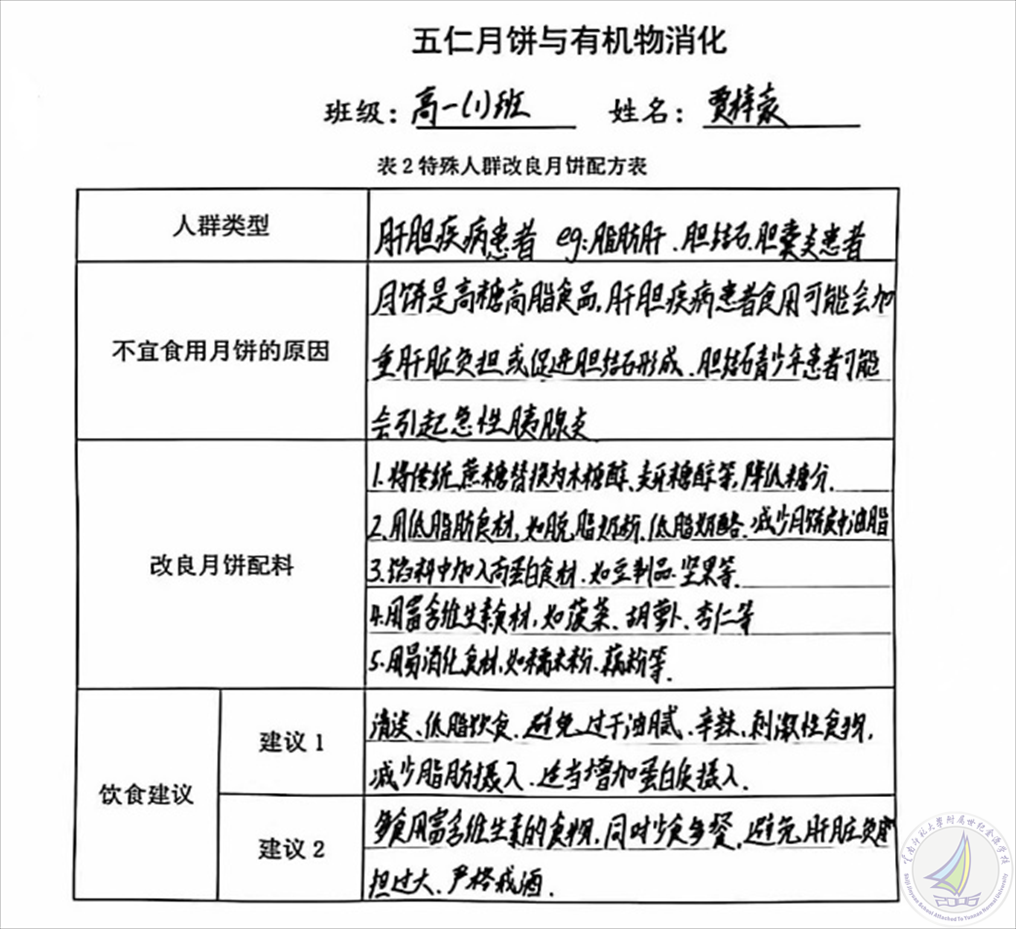 五仁月饼与有机物消化
班级：高一(1)班 姓名：贾梓豪
表2特殊人群改良月饼配方表
人群类型
肝胆疾病患者 eg:脂肪肝、胆结石、胆囊炎患者
不宜食用月饼的原因
月饼是高糖高脂食品,肝胆疾病患者食用可能会加
重肝脏负担或促进胆结石形成、胆结石青少年患者可能
会引起急性胰腺炎
改良月饼配料
1.将传统蔗糖替换为木糖醇、麦芽糖醇等,降低糖分.
2.用低脂肪食材,如脱脂奶粉、低脂奶酪、减少月饼皮中油脂
3.馅料中加入高蛋白食材.如豆制品.坚果等.
4.用富含维生素食材,如菠菜、胡萝卜、杏仁等
5.用易消化食材,如糯米粉、藕粉等.
饮食建议
建议1
清淡、低脂饮食、避免过于油腻、辛辣、刺激性食物,
减少脂肪摄入、适当增加蛋白质摄入.
建议2
多食用富含维生素的食物,同时少食多餐、避免肝脏负
担过大、严格戒酒.
云南师范大學附属世纪金源学校
Shiji Jinyuan School Attached To Yunnan Normal University